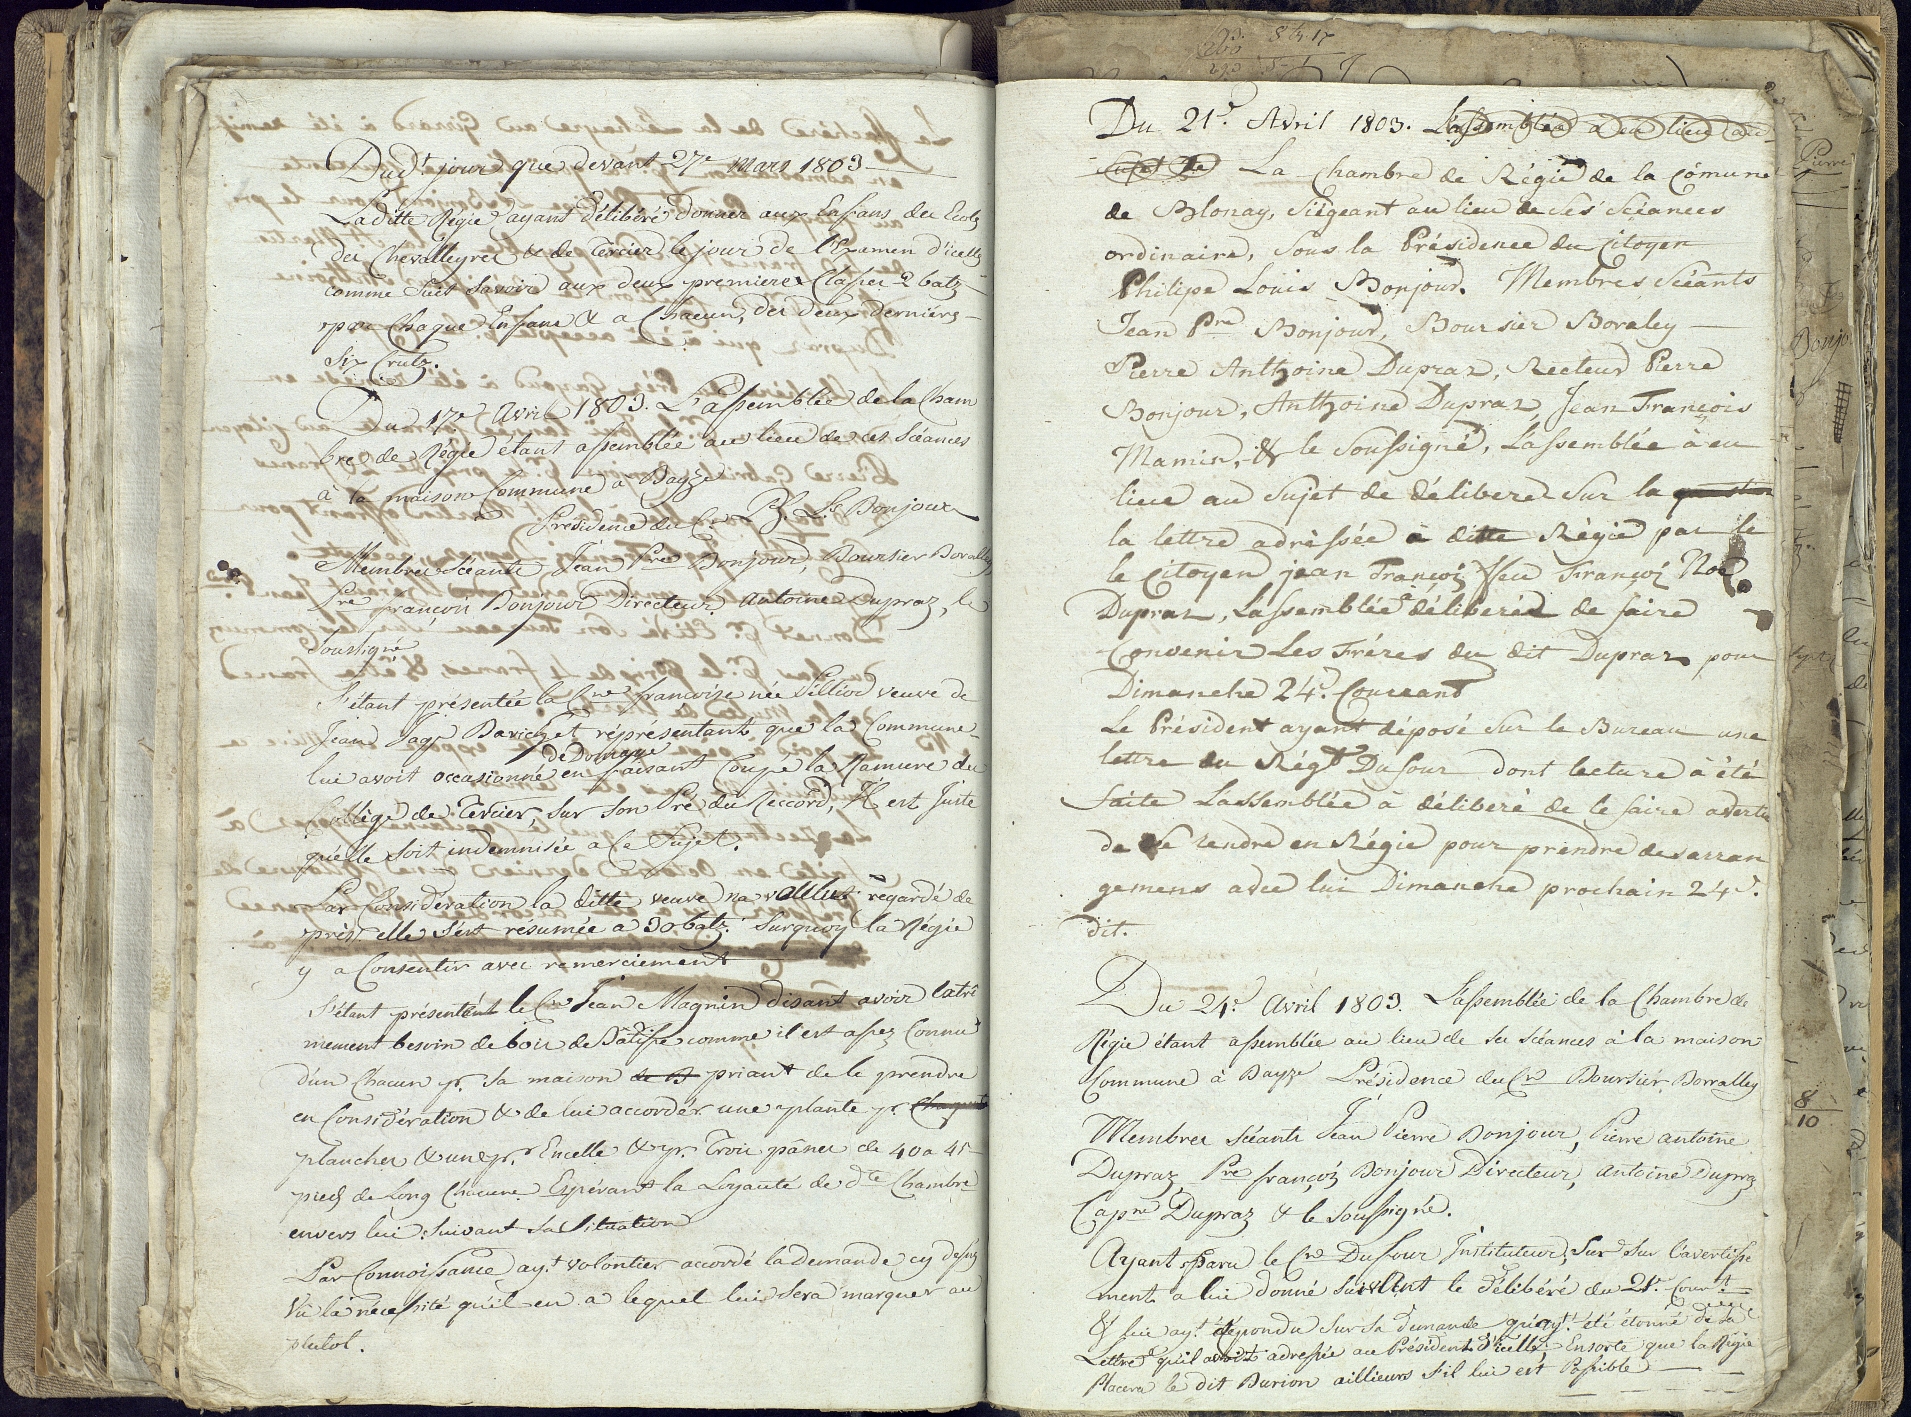 Dud.t jour que devant 27e Mars 1803
Laditte Régie ayant délibéré donner aux Enfans des Ecoles
des Chevalleyres & de Tercier le jour de l'Examen d'icelles
comme suit Savoir aux deux premieres Classes 2 batz
par Chaque Enfant & a Chacun des deux derniers
Six Crutz.
Du 17e Avril 1803. L'assemblée de la Cham
bre de Régie étant assemblée au lieu de ses Séances
à la maison Commune a Bayze
Présidence du Cn Ph. Ls Bonjour
Membres Séants Jean Pre Bonjour, Boursier Boralley
Pre françois Bonjour Directeur Antoine Dupraz, le
Soussigné
S'étant présentée la Cne françoise née Pilliod veuve de
Jean Jaqs et réprésentant que la Commune
de Domage
lui avoit occasionné en faisant Coupé la Ramure du
Collège de Tercier, sur son Pré du Reccord, Il est Juste
qu'elle soit indemnisée a ce Sujet.
Par Considération la ditte veuve na voullut regardé de
près elle s'est résumée a 30 batz. Surquoy la Régie
y a Consentir avec remerciement
S'étant présentént le Cn Jean Magnin disant avoir l'atrê
mement besoin de bois de Bâtisse comme il est assez Connu
d'un Chacun pr. Sa maison de B priant de le prendre
en Considération & de lui accordér une plante pr. Chaque
plancher & une pr. Encelle & pr. Trois pânes de 40 a 45
pieds de Long Chacune Espérant la Loyauté de dte Chambre
envers lui Suivant sa Situation
Par Connoissance ay.t volontier accordé la Demande cy dessus
Vû la nécessité qu'il en a lequel lui Sera marquer au
plutot.
Du 21e. Avril 1803. Lassemblée a eu lieu au
Sujet de La Chambre de Régie de la Cómune
de Blonay, Siégeant au lieu de Ses Séances
ordinaire, Sous la Présidence du Citoyen
Philipe Louis Bonjour. Membres Séants
Jean Pre Bonjour, Boursier Boraley
Pierre Anthoine Dupraz, Recteur Pierre
Bonjour, Anthoine Dupraz, Jean François
Mamin, & le Soussigné, Lassemblée à eu
lieu au Sujet de déliberer Sur la question
la lettre adréssée a ditte Régie par le
le Citoyen jean François ffeu François Noé
Dupraz, Lassemblée délibérer de faire
Convenir Les Fréres du dit Dupraz pour
Dimanche 24e. Courrant
Le Président ayant déposé Sur le Bureau une
lettre du Régt Dufour dont lecture à été
faite Lassemblée à délibéré de le faire averti
de se rendre en Régie pour prendre des arran
gemens adec lui Dimanche prochain 24e.
dit.
Du 24e. Avril 1803. Lassemblée de la Chambre de
Régie étant assemblée au lieu de ses Séances à la maison
Commune à Bayze Présidence du Cn Boursier Borralley
Membres Séants Jean Pierre Bonjour, Pierre antoine
Dupraz, Pre françois Bonjour Directeur, antoine Dupraz
Capne Dupraz & le Soussigné.
Ayant paru le Cne Dufour Instituteur, Sur Sur l'avertisse
ment a lui donné Suivant le délibéré du 21e. Court
& lui ay.t répondu Sur Sa Demande qu'ay.t été étonné de Sa
Lettre qu'il avoit adressée au Président d'icelle Ensorte que la Régie
Placera le dit Burion aillieurs S'il lui est Possible
Pierre
Bonjo
8
10